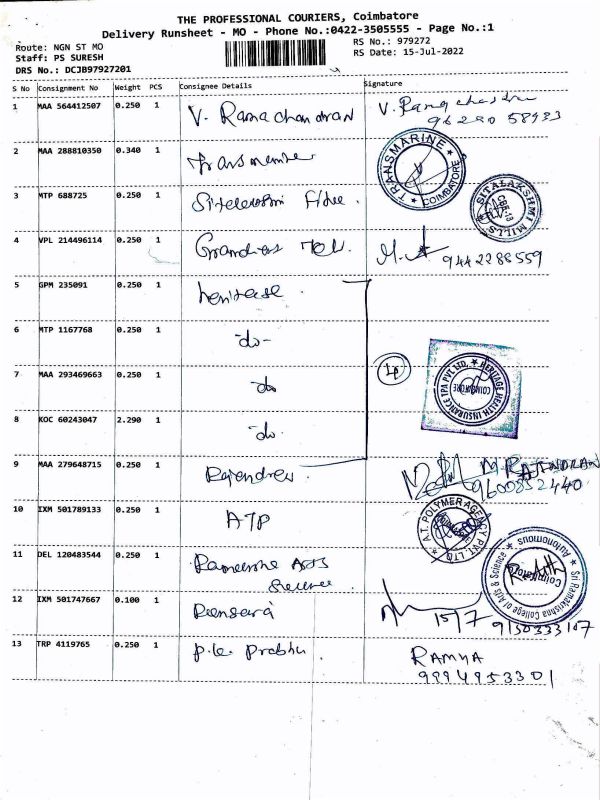 THE PROFESSIONAL COURIERS, Coimbatore
Delivery Runsheet - MO - Phone No.:0422-3505555 - Page No.:1
Route: NGN ST MO
Staff: PS SURESH
DRS No.: DCJB97927201
RS No.: 979272
RS Date: 15-Jul-2022
S No Consignment No Weight PCS Consignee Details Signature
1 MAA 564412507 0.250 1 V. Ramachandran V. Ramachandran
96290 58933
2 MAA 288810350 0.340 1
TRANSMARINE COIMBATORE
3 MTP 688725 0.250 1
SITALAKSHMI MILLS
4 VPL 214496114 0.250 1
9442288559
5 GPM 235091 0.250 1 heritage
6 MTP 1167768 0.250 1 -do-
4p
7 MAA 293469663 0.250 1 -do
HERITAGE HEALTH INSURANCE TPA PVT. LTD.
COIMBATORE
8 KOC 60243047 2.290 1 -do-
9 MAA 279648715 0.250 1 Rajendren M. RAJENDRAN
9600852440
10 IXM 501789133 0.250 1 ATP
A.T. POLYMER AGENCY PVT LTD.
11 DEL 120483544 0.250 1 Arts
Science
Sri Ramakrishna College of Arts & Science
Autonomous
Coimbatore
12 IXM 501747667 0.100 1
15/7 9150333107
13 TRP 4119765 0.250 1 P.K. Prabhu RAMYA
9994953301